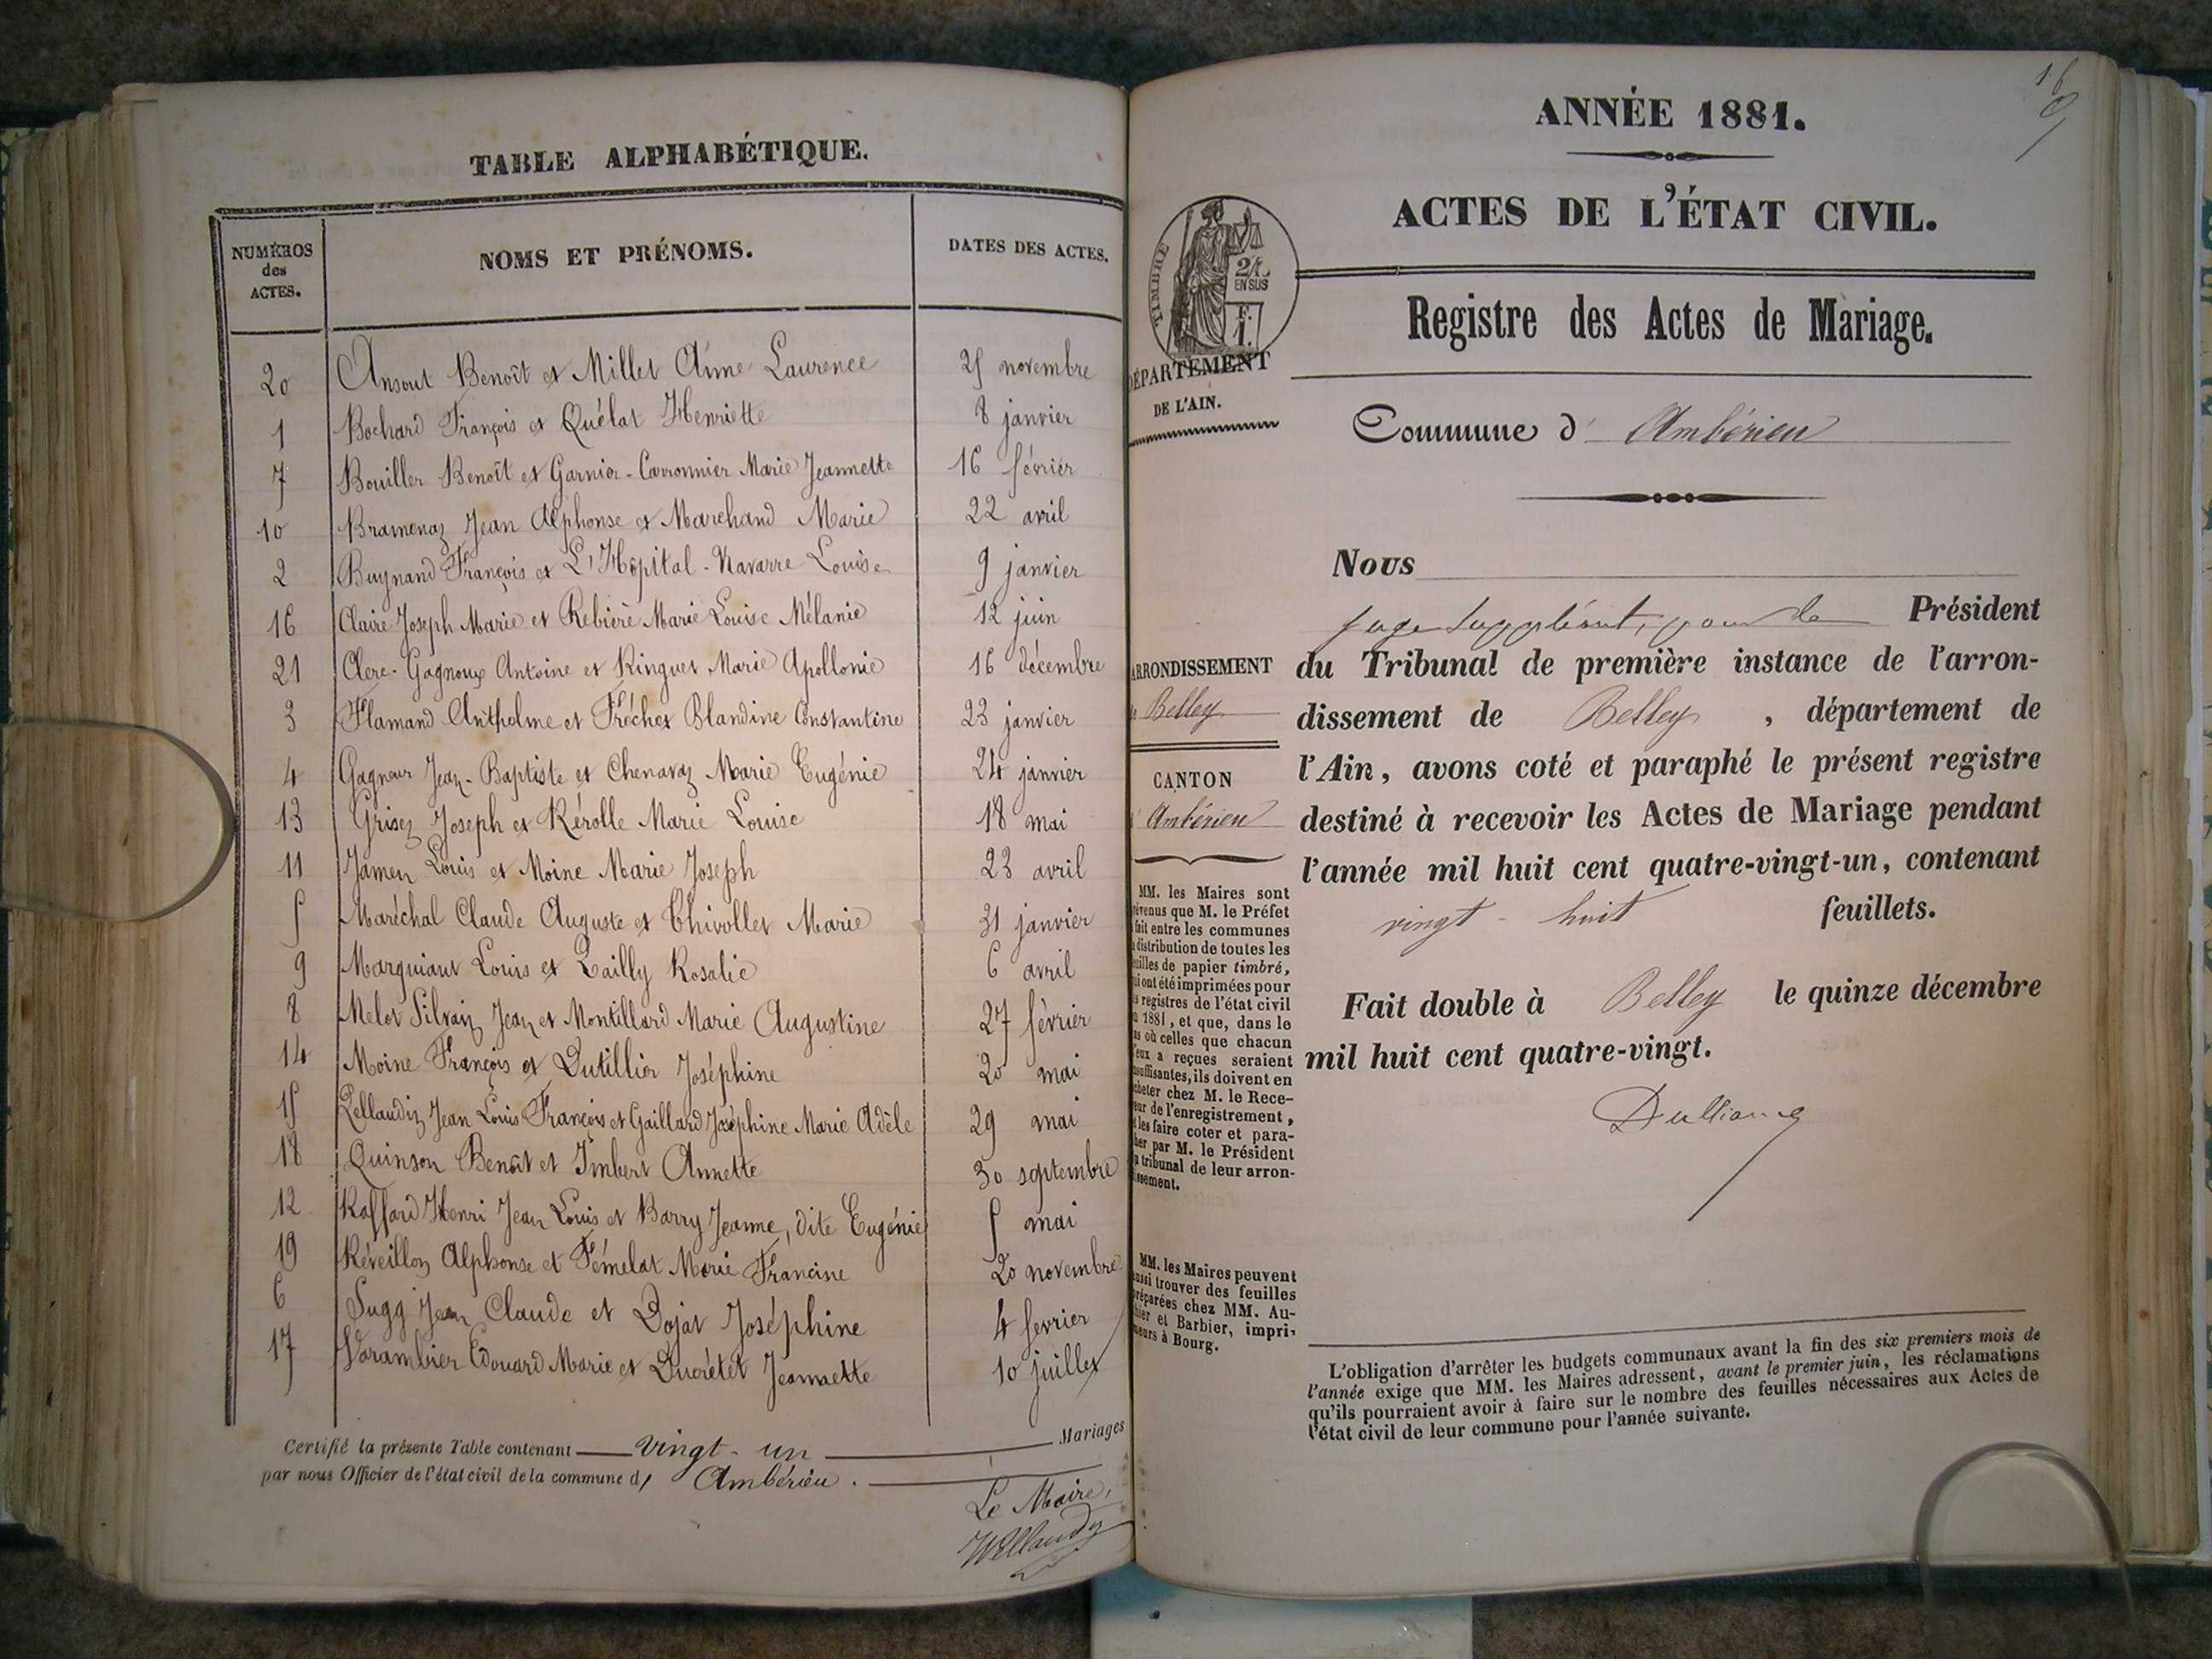 TABLE ALPHABÉTIQUE.
NUMÉROS des ACTES. NOMS ET PRÉNOMS. DATES DES ACTES.
20 Ansout Benoît et Millet Anne Laurence 25 novembre
1 Bochard François et Quélat Henriette 8 janvier
7 Bouiller Benoît et Garnier-Carronnier Marie Jeannette 16 février
10 Bramenaz Jean Alphonse et Marchand Marie 22 avril
2 Buynand François et L'Hôpital-Navarre Louise 9 janvier
16 Claire Joseph Marie et Rebière Marie Louise Mélanie 12 juin
21 Clerc-Gagnoux Antoine et Ringuet Marie Apollonie 16 décembre
3 Flamand Anthelme et Fréchet Blandine Constantine 23 janvier
4 Gagneur Jean-Baptiste et Chenavaz Marie Eugénie 24 janvier
13 Grisez Joseph et Rérolle Marie Louise 18 mai
11 Jamen Louis et Moine Marie Joseph 23 avril
5 Maréchal Claude Auguste et Chivollet Marie 31 janvier
9 Marguiant Louis et Lailly Rosalie 6 avril
8 Melot Silvain Jean et Montillard Marie Augustine 27 février
14 Moine François et Dutillier Joséphine 20 mai
15 Pellaudin Jean Louis François et Gaillard Joséphine Marie Adèle 29 mai
18 Quinson Benoît et Imbert Annette 30 septembre
12 Raffard Henri Jean Louis et Barry Jeanne, dite Eugénie 5 mai
19 Réveillon Alphonse et Fémelat Marie Francine 20 novembre
6 Sugg Jean Claude et Dojat Joséphine 4 fevrier
17 Varambier Edouard Marie et Ducrétet Jeannette 10 juillet
Certifié la présente Table contenant vingt-un Mariages
par nous Officier de l'état civil de la commune d' Ambérieu.
Le Maire,
ANNÉE 1881.
ACTES DE L'ÉTAT CIVIL.
TIMBRE
2/10 EN SUS
F. 1.
Registre des Actes de Mariage.
DÉPARTEMENT
DE L'AIN.
Commune d' Ambérieu
Nous
juge suppléant, pour le Président
du Tribunal de première instance de l'arron-
dissement de Belley, département de
l'Ain, avons coté et paraphé le présent registre
destiné à recevoir les Actes de Mariage pendant
l'année mil huit cent quatre-vingt-un, contenant
vingt-huit feuillets.
Fait double à Belley le quinze décembre
mil huit cent quatre-vingt.
ARRONDISSEMENT
Belley
CANTON
Ambérieu
MM. les Maires sont
prévenus que M. le Préfet
fait entre les communes
la distribution de toutes les
feuilles de papier timbré,
qui ont été imprimées pour
les registres de l'état civil
1881, et que, dans le
cas où celles que chacun
d'eux a reçues seraient
insuffisantes, ils doivent en
acheter chez M. le Rece-
veur de l'enregistrement,
les faire coter et para-
pher par M. le Président
tribunal de leur arron-
dissement.
MM. les Maires peuvent
aussi trouver des feuilles
préparées chez MM. Au-
thier et Barbier, impri-
meurs à Bourg.
L'obligation d'arrêter les budgets communaux avant la fin des six premiers mois de
l'année exige que MM. les Maires adressent, avant le premier juin, les réclamations
qu'ils pourraient avoir à faire sur le nombre des feuilles nécessaires aux Actes de
l'état civil de leur commune pour l'année suivante.